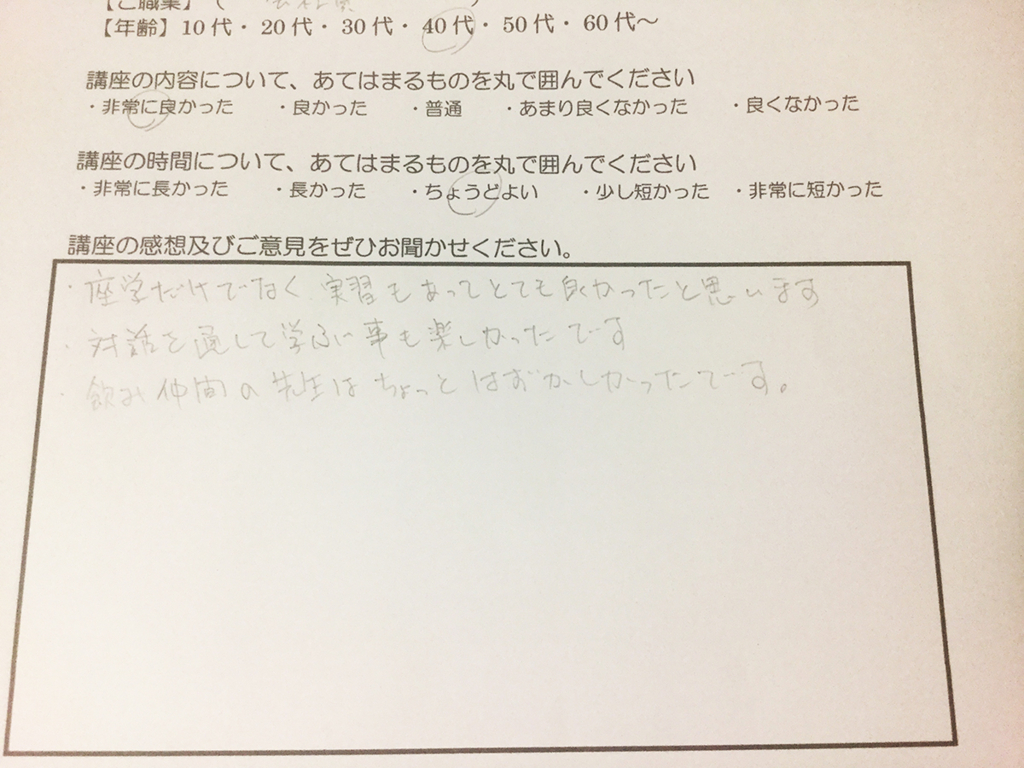 【ご職業】( 会社員 )
【年齢】10代・20代・30代・40代・50代・60代～
講座の内容について、あてはまるものを丸で囲んでください
・非常に良かった ・良かった ・普通 ・あまり良くなかった ・良くなかった
講座の時間について、あてはまるものを丸で囲んでください
・非常に長かった ・長かった ・ちょうどよい ・少し短かった ・非常に短かった
講座の感想及びご意見をぜひお聞かせください。
・座学だけでなく、実習もあってとても良かったと思います
・対話を通して学ぶ事も楽しかったです
・飲み仲間の先生はちょっとはずかしかったです。